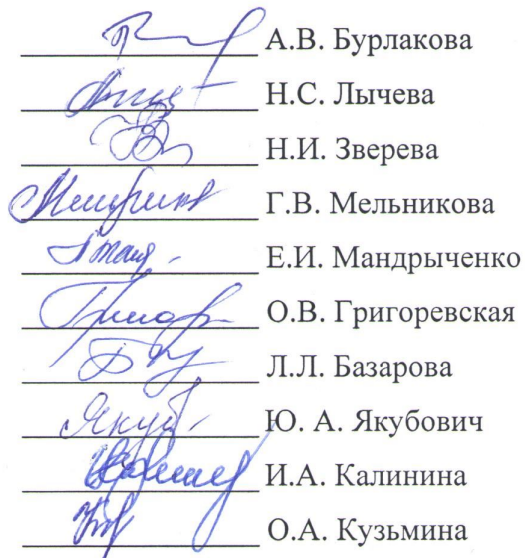 А.В. Бурлакова
Н.С. Лычева
Н.И. Зверева
Г.В. Мельникова
Е.И. Мандрыченко
О.В. Григоревская
Л.Л. Базарова
Якуб Ю. А. Якубович
И.А. Калинина
О.А. Кузьмина